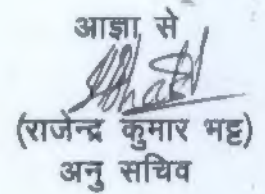 आज्ञा से
(राजेन्द्र कुमार भट्ट)
अनु सचिव